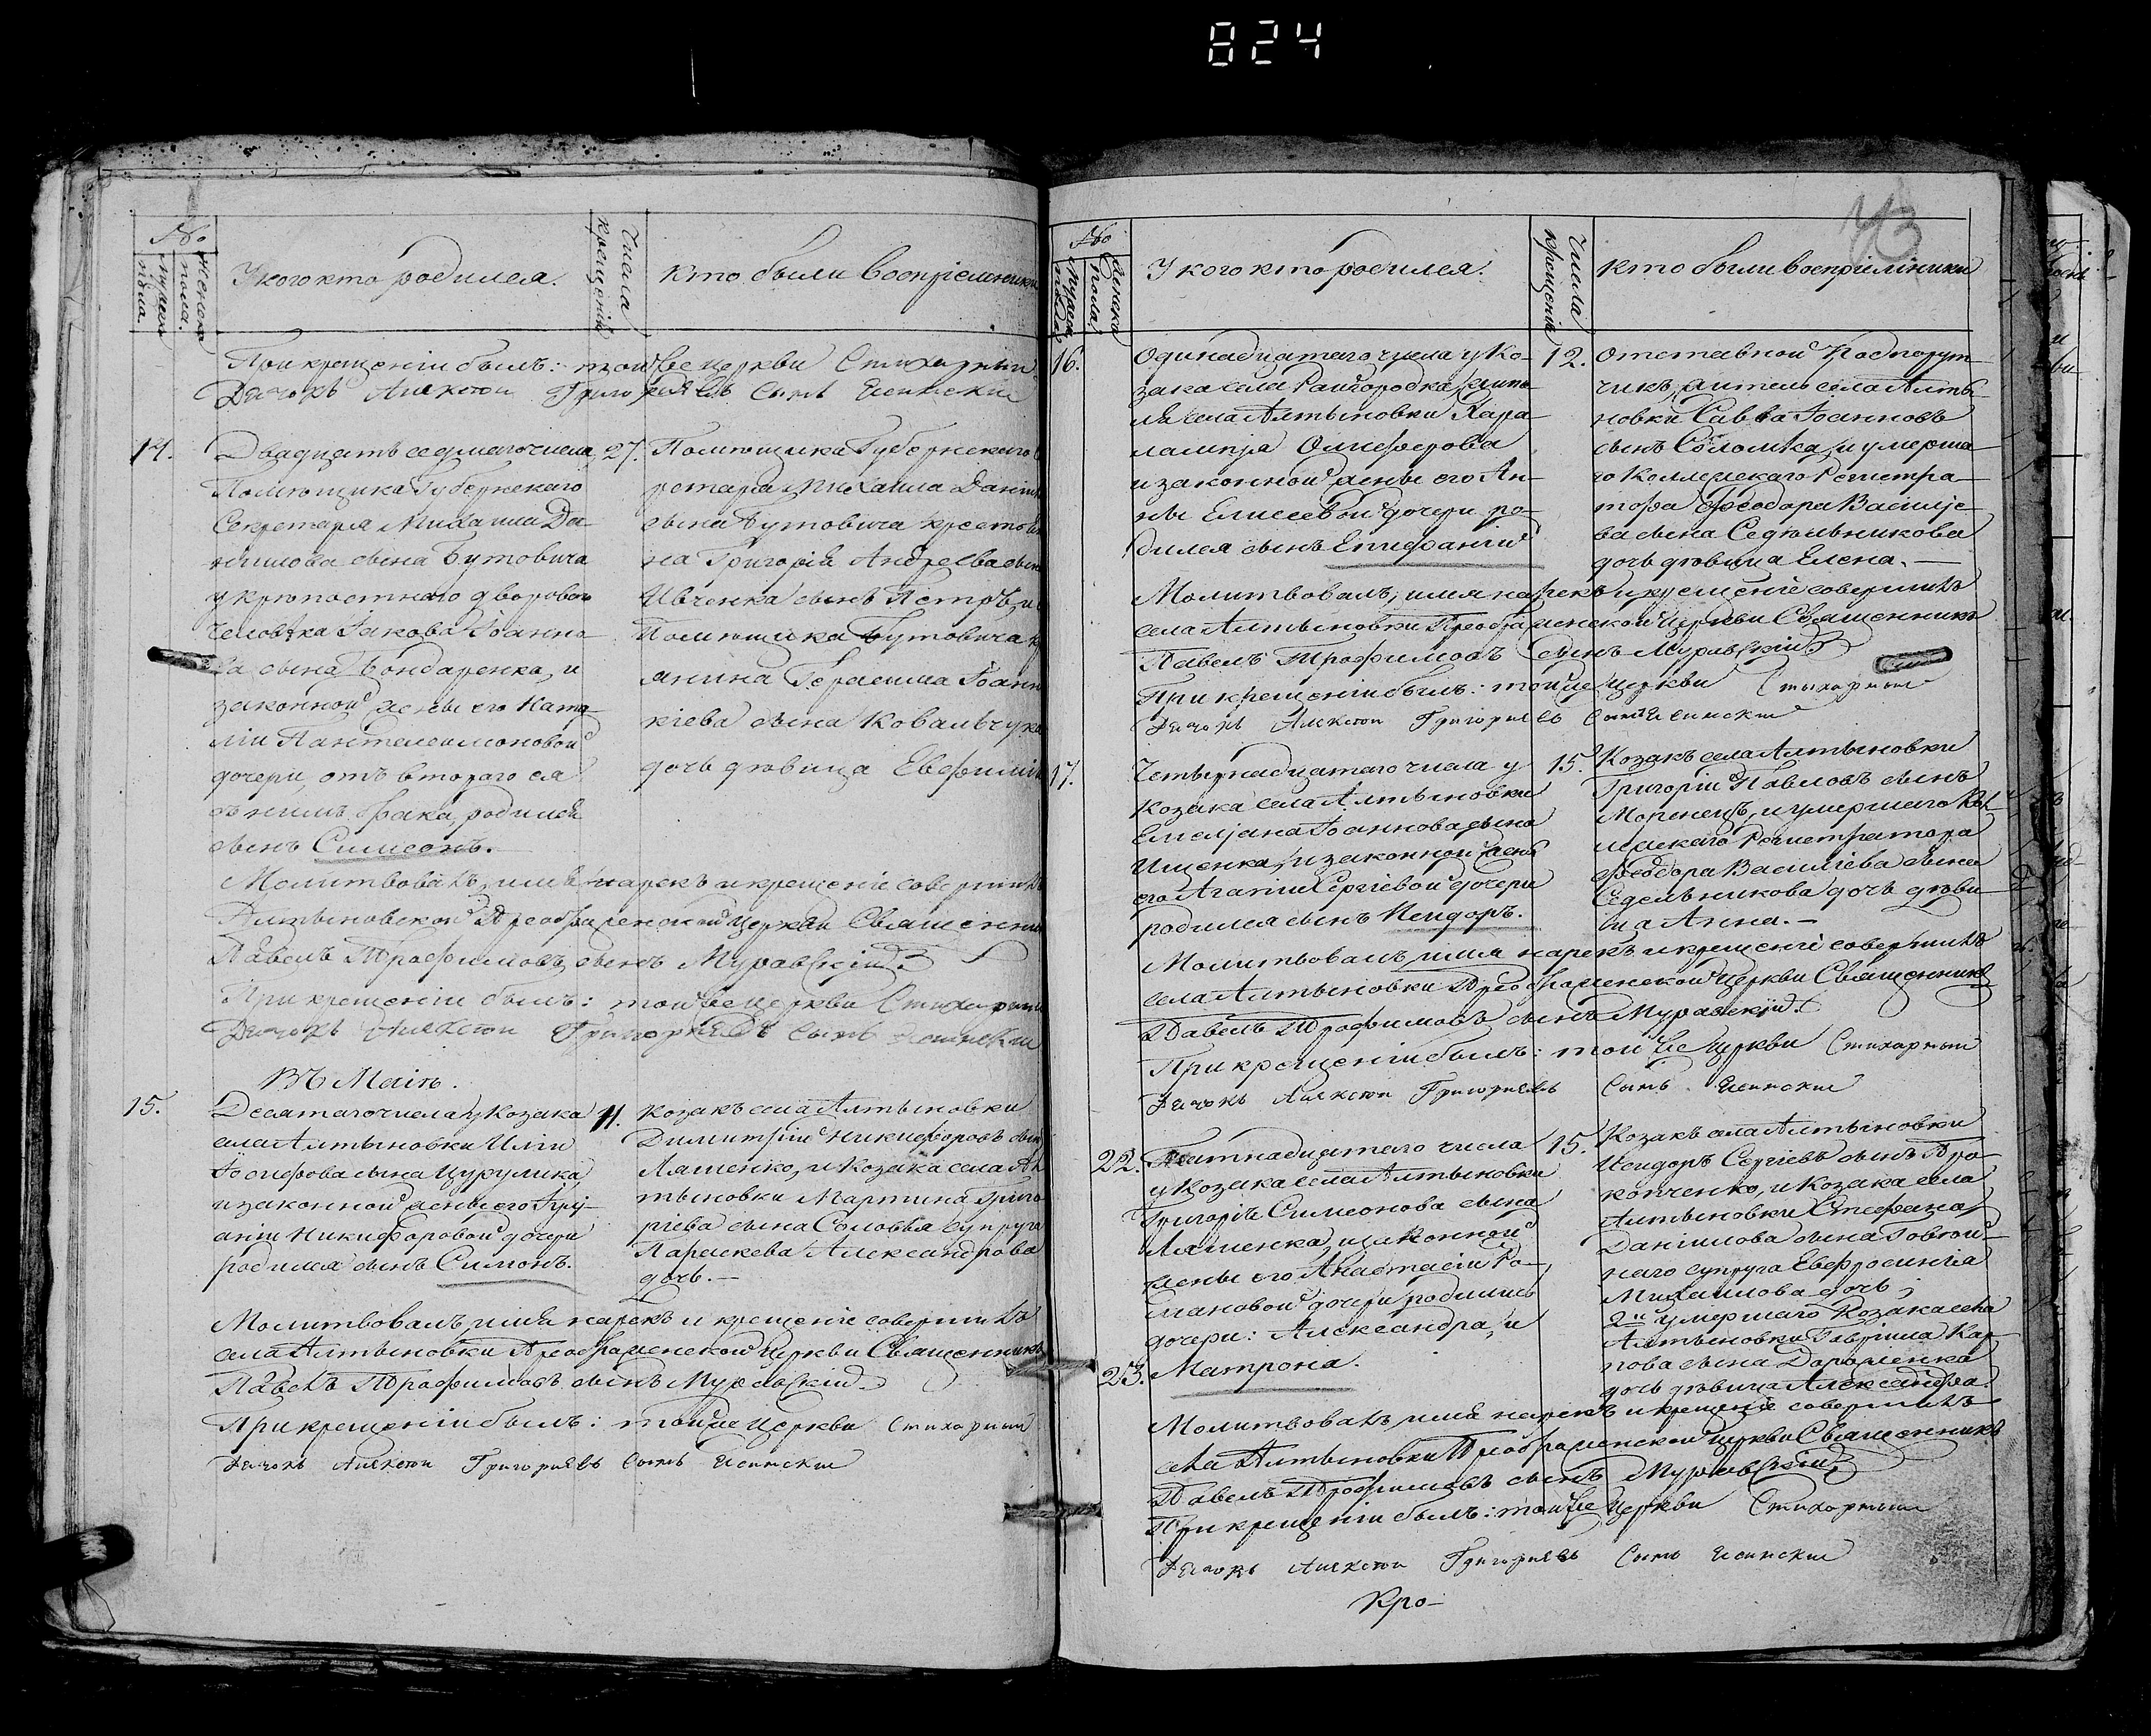 824
No
мужеска пола.
женска пола.
У кого кто родился.
Числа крещенія
Кто были воспріемники
При крещеніи былъ: той же церкви Стихарный
Дячокъ Алексѣй Григориевъ сынъ
14.
Двадцать седмаго числа
Помѣщика Губернскаго
Секретаря Михаила Да-
ніилова сына Бутовича
у крѣпостнаго двороваго
человѣка Іакова Іоанно-
ва сына Бондаренка, и
законной жены его Ната-
ліи Пантелеимоновой
дочери, отъ втораго ея
съ нимъ брака, родился
сынъ Симеонъ.
27.
Помѣщика Губернскаго
ретаря Михаила Даніил
сына Бутовича крестья
на Григорія Андреева сына
Ивченка сынъ Петръ, и
Помѣщика Бутовича кр
янина Герасима Іоанн
кіева сына Ковальчука
дочь дѣвица Евфимія
Молитвовалъ, имя нарекъ и крещеніе совершилъ
Алтыновской Преображенской церкви Священникъ
Павелъ Трофимовъ сынъ Муравскій.
При крещеніи былъ: той же церкви Стихарный
Дячокъ Алексѣй Григориевъ сынъ
Въ Маіѣ.
15.
Десятаго числа у Козака
села Алтыновки Иліи
Іосифова сына Цурулика
и законной жены его Іулі-
аніи Никифоровой дочери
родился сынъ Симонъ.
11.
Козакъ села Алтыновки
Димитрій Никифоровъ сынъ
Ляшенко, и Козака села Ал
тыновки Мартина Григо
ріева сына Соловья супруга
Параскева Александрова
дочь.
Молитвовалъ, имя нарекъ и крещеніе совершилъ
села Алтыновки Преображенской церкви Священникъ
Павелъ Трофимовъ сынъ Муравский.
При крещеніи былъ: той же церкви Стихарный
Дячокъ Алексѣй Григориевъ сынъ
43
No
мужеска пола
женска пола
У кого кто родился.
Числа крещенія
Кто были воспріемники
16.
Одинадцатаго числа у Ко-
зака села Райгородка, жите-
ля села Алтыновки Хара-
лампія Олиферова
и законной жены его Ан-
ны Елисеевой дочери ро-
дился сынъ Епифаній
12.
Отставной Подпорут-
чикъ, житель села Алты-
новки Савва Іоанновъ
сынъ Соломка, и умерша-
го Коллежскаго Регистра-
тора Феодора Василье-
ва сына Седельникова
дочь дѣвица Елена.
Молитвовалъ, имя нарекъ и крещеніе совершилъ
села Алтыновки Преображенской Церкви Священникъ
Павелъ Трофимовъ сынъ Муравскій.
При крещеніи былъ: той же церкви Стихарный
Дячокъ Алексѣй Григориевъ сынъ
17.
Четырнадцатаго числа у
Козака села Алтыновки
Емеліана Іоаннова сына
Ищенка, и законной жены
его Агапіи Сергіевой дочери
родился сынъ Исидоръ.
15.
Козакъ села Алтыновки
Григорій Павловъ сынъ
Моренецъ, и умершаго Кол
лежскаго Регистратора
Феодора Василіева сына
Седельникова дочь дѣви-
ца Анна.
Молитвовалъ, имя нарекъ и крещеніе совершилъ
села Алтыновки Преображенской Церкви Священникъ
Павелъ Трофимовъ сынъ Муравскій.
При крещеніи былъ: той же церкви Стихарный
Дячокъ Алексѣй Григориевъ сынъ
22.
Пятнадцатаго числа
у Козака села Алтыновки
Григорія Симеонова сына
Ляшенка, и законной
жены его Анастасіи Ро-
мановой дочери родились
дочери: Александра, и
23. Матрона.
15.
Козакъ села Алтыновки
Исидоръ Сергіевъ сынъ Про-
копченко, и Козака села
Алтыновки Стефана
Даніилова сына
супруга Евфросинія
Михаилова дочь;
2й умершаго Козака села
Алтыновки Гавріила Кар-
пова сына Дорошенка
дочь дѣвица Александра.
Молитвовалъ, имя нарекъ и крещеніе совершилъ
села Алтыновки Преображенской церкви Священникъ
Павелъ Трофимовъ сынъ Муравскій.
При крещеніи былъ: той же церкви Стихарный
Дячокъ Алексѣй Григориевъ сынъ
Кро-